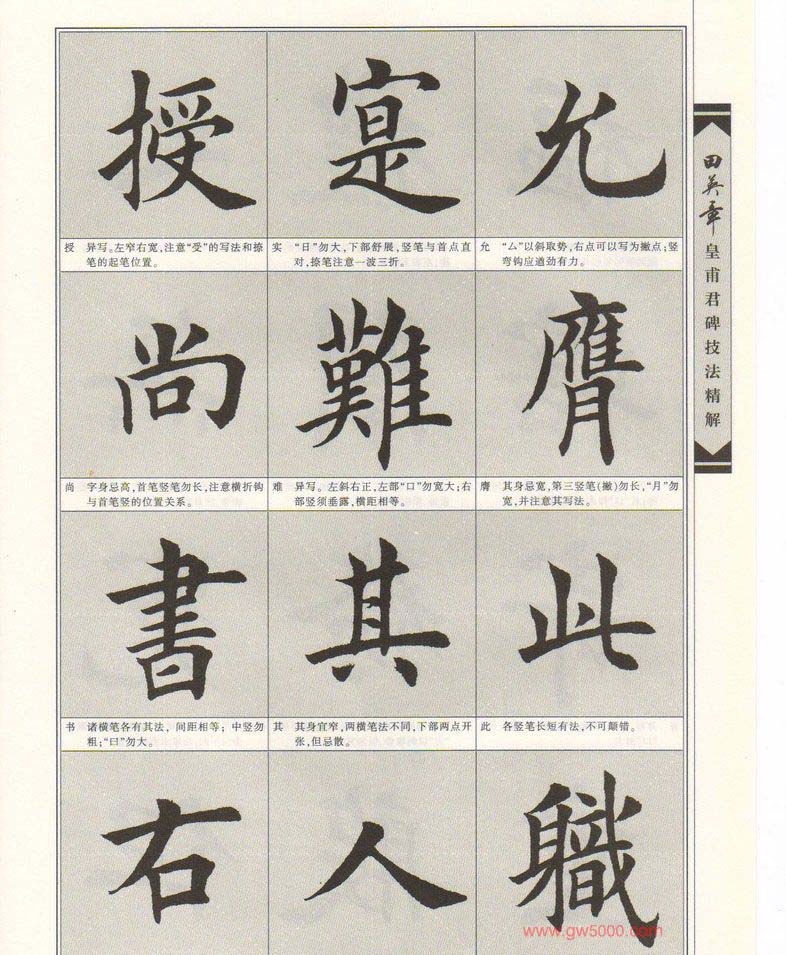 田英章皇甫君碑技法精解
允
允 “厶”以斜取势,右点可以写为撇点;竖
弯钩应遒劲有力。
膺
膺 其身忌宽,第三竖笔(撇)勿长,“月”勿
宽,并注意其写法。
此
此 各竖笔长短有法,不可颠错。
職
寔
实 “日”勿大,下部舒展,竖笔与首点直
对,捺笔注意一波三折。
難
难 异写。左斜右正,左部“口”勿宽大;右
部竖须垂露,横距相等。
其
其 其身宜窄,两横笔法不同,下部两点开
张,但忌散。
人
授
授 异写。左窄右宽,注意“受”的写法和捺
笔的起笔位置。
尚
尚 字身忌高,首笔竖笔勿长,注意横折钩
与首笔竖的位置关系。
書
书 诸横笔各有其法,间距相等;中竖勿
粗;“曰”勿大。
右
www.gw5000.com